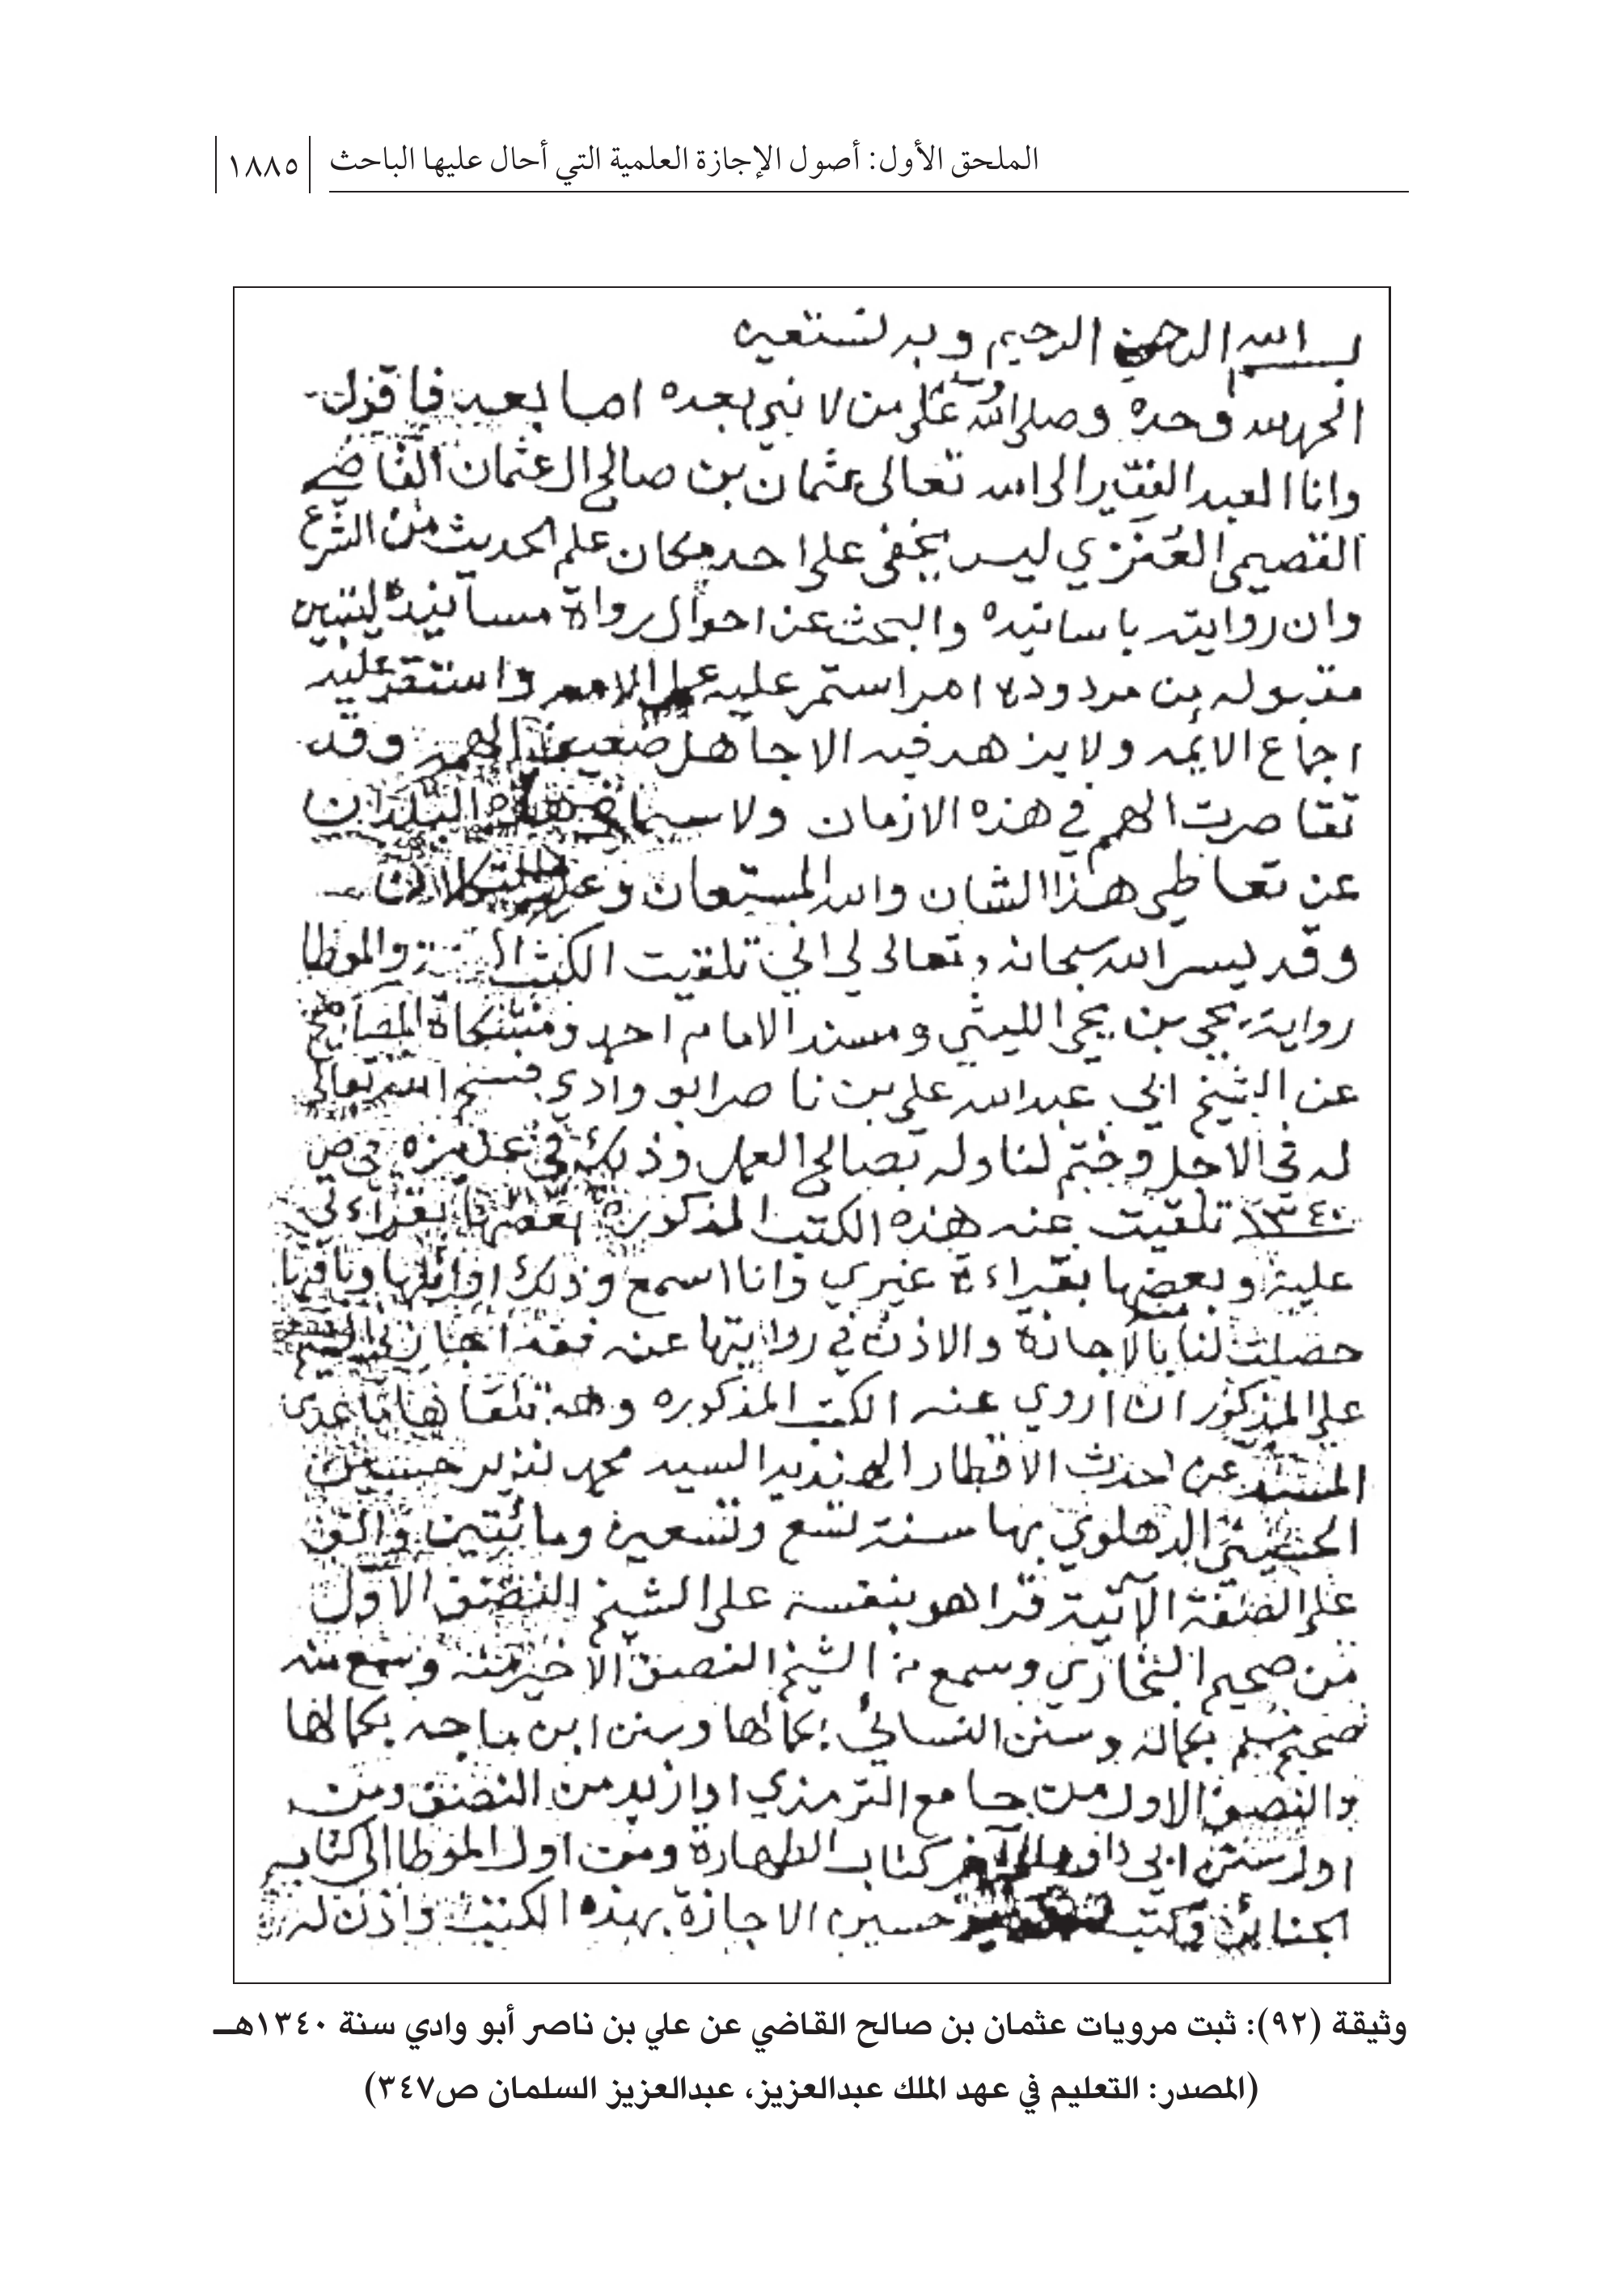 الملحق الأول: أصول الإجازة العلمية التي أحال عليها الباحث ١٨٨٥
بسم الله الرحمن الرحيم وبه نستعين
الحمد لله وحده وصلى الله وسلم على من لا نبي بعده اما بعد فاقول
وانا العبد الفقير الى الله تعالى عثمان بن صالح ال عثمان القاضي
القصيمي العنزي ليس يخفى على احد مكان علم الحديث من الشرع
وان روايته باسانيده والبحث عن احوال رواة مسانيده ليتبين
مقبوله من مردوده امر استمر عليه عمل الامه واستقر عليه
اجماع الايمه ولا يزهد فيه الا جاهل ضعيف الهمه وقد
تقاصرت الهمم في هذه الازمان ولا سيما في هذه البلدان
عن تعاطي هذا الشان والله المستعان وعليه التكلان
وقد يسر الله سبحانه وتعالى لي اني تلقيت الكتب الستة والموطا
رواية يحي بن يحي الليثي ومسند الامام احمد ومشكاة المصابيح
عن الشيخ ابي عبدالله علي بن ناصر ابو وادي فسح الله تعالى
له في الاجل وختم لنا وله بصالح العمل وذلك في عنيزه في
١٣٤٠ تلقيت عنه هذه الكتب المذكورة بعضها بقراءتي
عليه وبعضها بقراءة غيري وانا اسمع وذلك اوائلها وباقيها
حصلت لنا بالاجازة والاذن في روايتها عنه فقد اجاز لي الشيخ
علي المذكور ان اروي عنه الكتب المذكوره وهو تلقاها ما عدى
المسند عن محدث الاقطار الهنديه السيد محمد نذير حسين
الدهلوي بها سنة تسع وتسعين ومائتين والف
على الصفة الآتية قرا هو بنفسه على الشيخ النصف الاول
من صحيح البخاري وسمع من الشيخ النصف الاخير منه وسمع منه
صحيح مسلم بكماله وسنن النسائي بكمالها وسنن ابن ماجه بكمالها
والنصف الاول من جامع الترمذي او ازيد من النصف ومن
اول سنن ابي داود الى آخر كتاب الطهارة ومن اول الموطا الى كتاب
الجنائز وكتب حسين الاجازة بهذه الكتب واذن له
وثيقة (٩٢): ثبت مرويات عثمان بن صالح القاضي عن علي بن ناصر أبو وادي سنة ١٣٤٠هـ
(المصدر: التعليم في عهد الملك عبدالعزيز، عبدالعزيز السلمان ص٣٤٧)